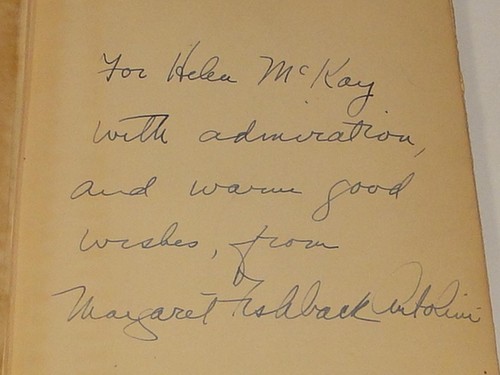 For Helen McKay
with admiration,
and warm good
wishes, from
Margaret Fishback Antolini